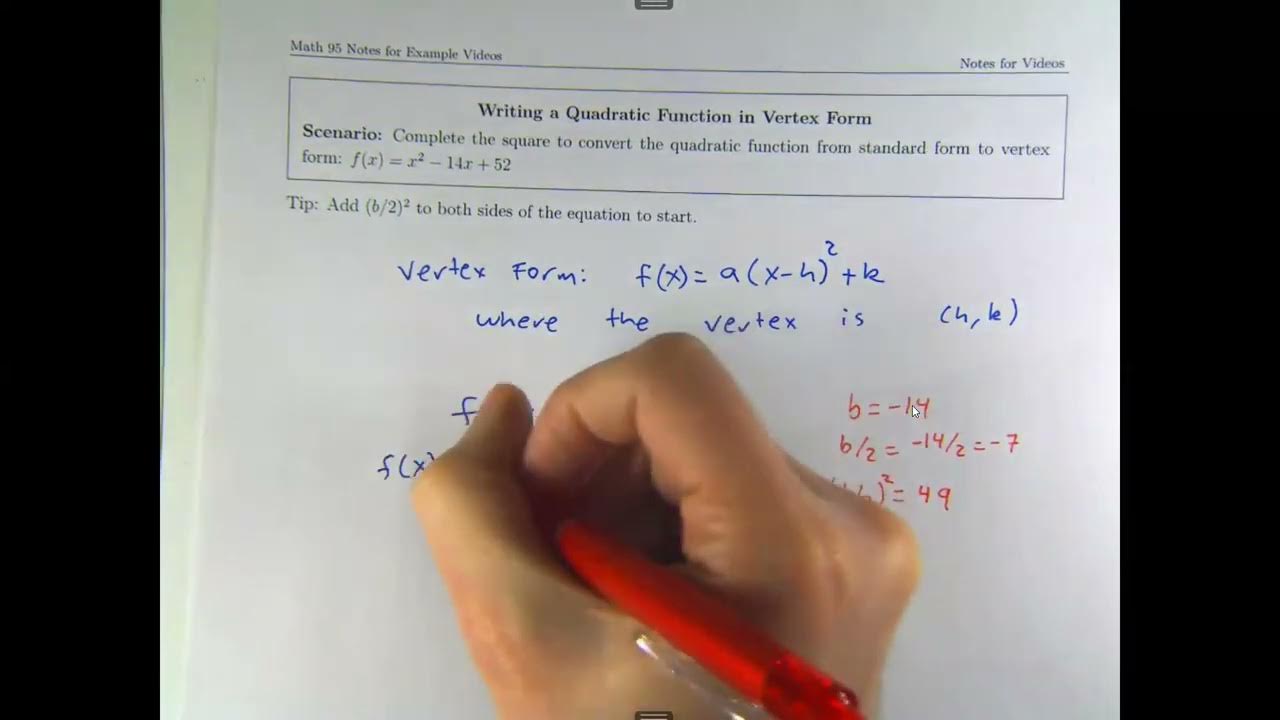 Math 95 Notes for Example Videos
Notes for Videos
Writing a Quadratic Function in Vertex Form
Scenario: Complete the square to convert the quadratic function from standard form to vertex
form: f(x) = x² − 14x + 52
Tip: Add (b/2)² to both sides of the equation to start.
Vertex Form: f(x) = a(x-h)² + k
where the vertex is (h, k)
f
b = -14
f(x)
b/2 = -14/2 = -7
)² = 49